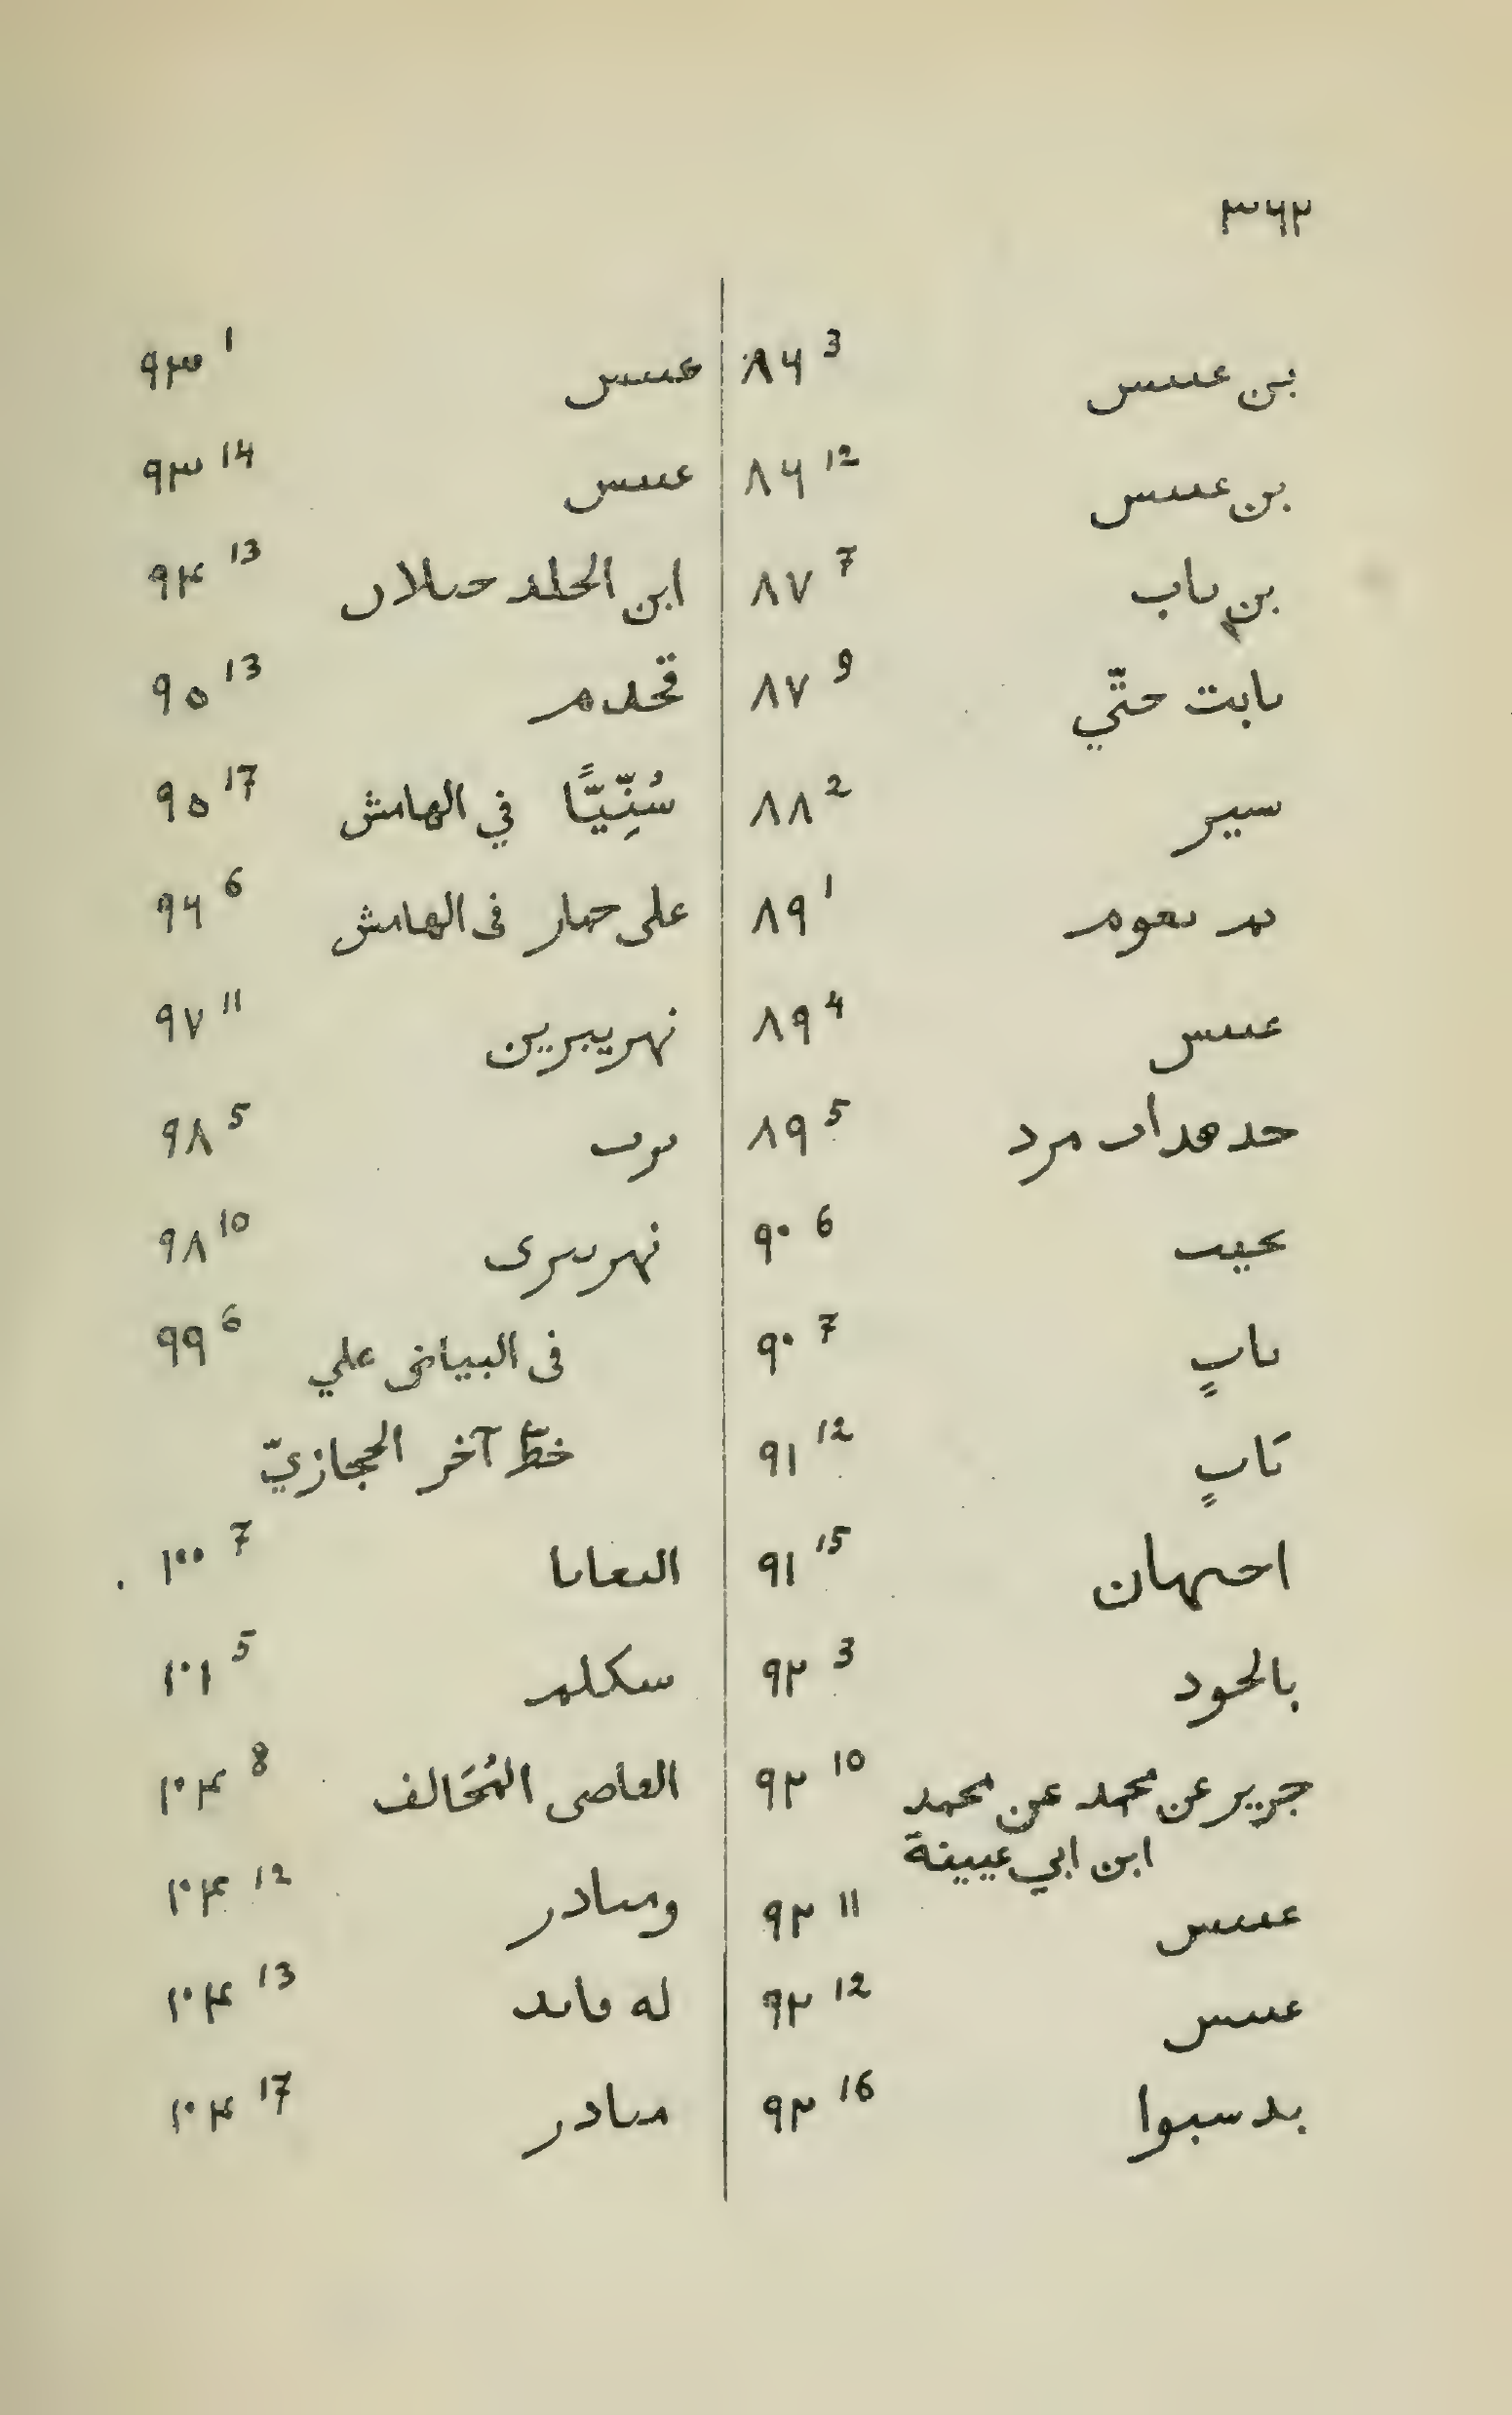 ٣٦٢
بن عىىىس ٨٦ 3
بن عىىىس ٨٦ 12
بن ىاب ٨٧ 7
ىابت حتّي ٨٧ 9
سير ٨٨ 2
ىم ىعوم ٨٩ 1
عىىس ٨٩ 4
حد هداىـ مرد ٨٩ 5
ىحيىٮ ٩٠ 6
ىابٍ ٩٠ 7
تَابٍ ٩١ 12
احىهان ٩١ 15
بالحود ٩٢ 3
جرير عن محمد عن محمد ٩٢ 10
ابن ابي عيينة
عىىىس ٩٢ 11
عىىس ٩٢ 12
بد سبوا ٩٢ 16
عىىس ٩٣ 1
عىىس ٩٣ 14
ابن الحلد حىلاں ٩٤ 13
قحدم ٩٥ 13
سُنِّيًّا في الهامش ٩٥ 17
على حمار فى الهامش ٩٦ 6
نهريبرين ٩٧ 11
ىوٮ ٩٨ 5
نهرىىرى ٩٨ 10
فى البياض علي ٩٩ 6
خطّ آخر الحجازيّ
الىعاىا ١٠٠ 7
سكلم ١٠١ 5
العاصى المُخَالف ١٠٤ 8
ومىادر ١٠٤ 12
له ڡاىد ١٠٤ 13
مىادر ١٠٤ 17